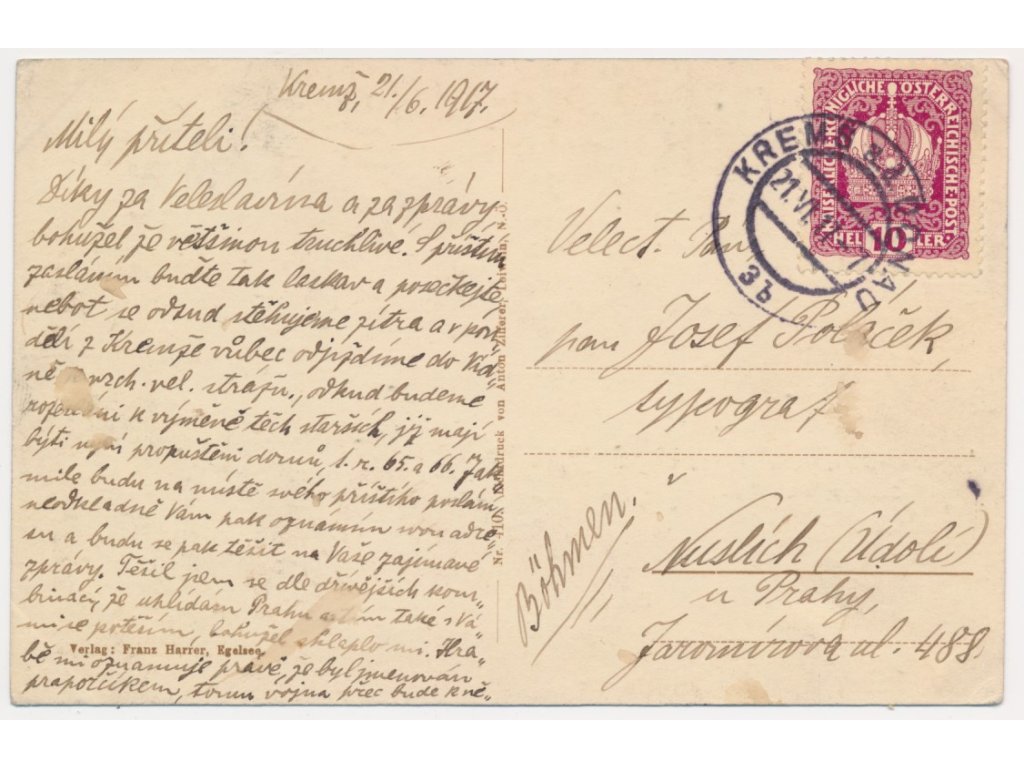 Kremž, 21./6. 1917.
Milý příteli!
Díky za Veleslavína a za zprávy,
bohužel že většinou truchlivé. S příštím
zasláním buďte tak laskav a posečkejte,
neboť se odsud stěhujeme zítra a v pon-
dělí z Kremže vůbec odjíždíme do Víd-
ně vrch. vel. stráže., odkud budeme
k výměně těch starších, jež mají
býti nyní propuštěni domů, t. r. 65. a 66. Jak
mile budu na místě svého příštího poslání
neodkladně Vám pak oznámím svou adre-
su a budu se pak těšit na Vaše zajímavé
zprávy. Těšil jsem se dle dřívějších kom-
binací, že uhlídám Prahu a tím také s Vá-
mi se potěším, bohužel sklaplo mi. Hra-
bě mi oznamuje právě, že byl jmenován
praporčíkem, tomu vojna přec bude k ně-
Verlag: Franz Harrer, Egelsee.
Nr. 410. druck von Anton N.-Ö.
KAISERLICHE KÖNIGLICHE ÖSTERREICHISCHE POST
HELLER 10
KREMS a. d. DONAU
21. VI. 17
3b
Velect. Pan
pan Josef Poláček,
typograf
v
Nuslích (Údolí)
u Prahy,
Jaromírova ul. 488.
Böhmen.